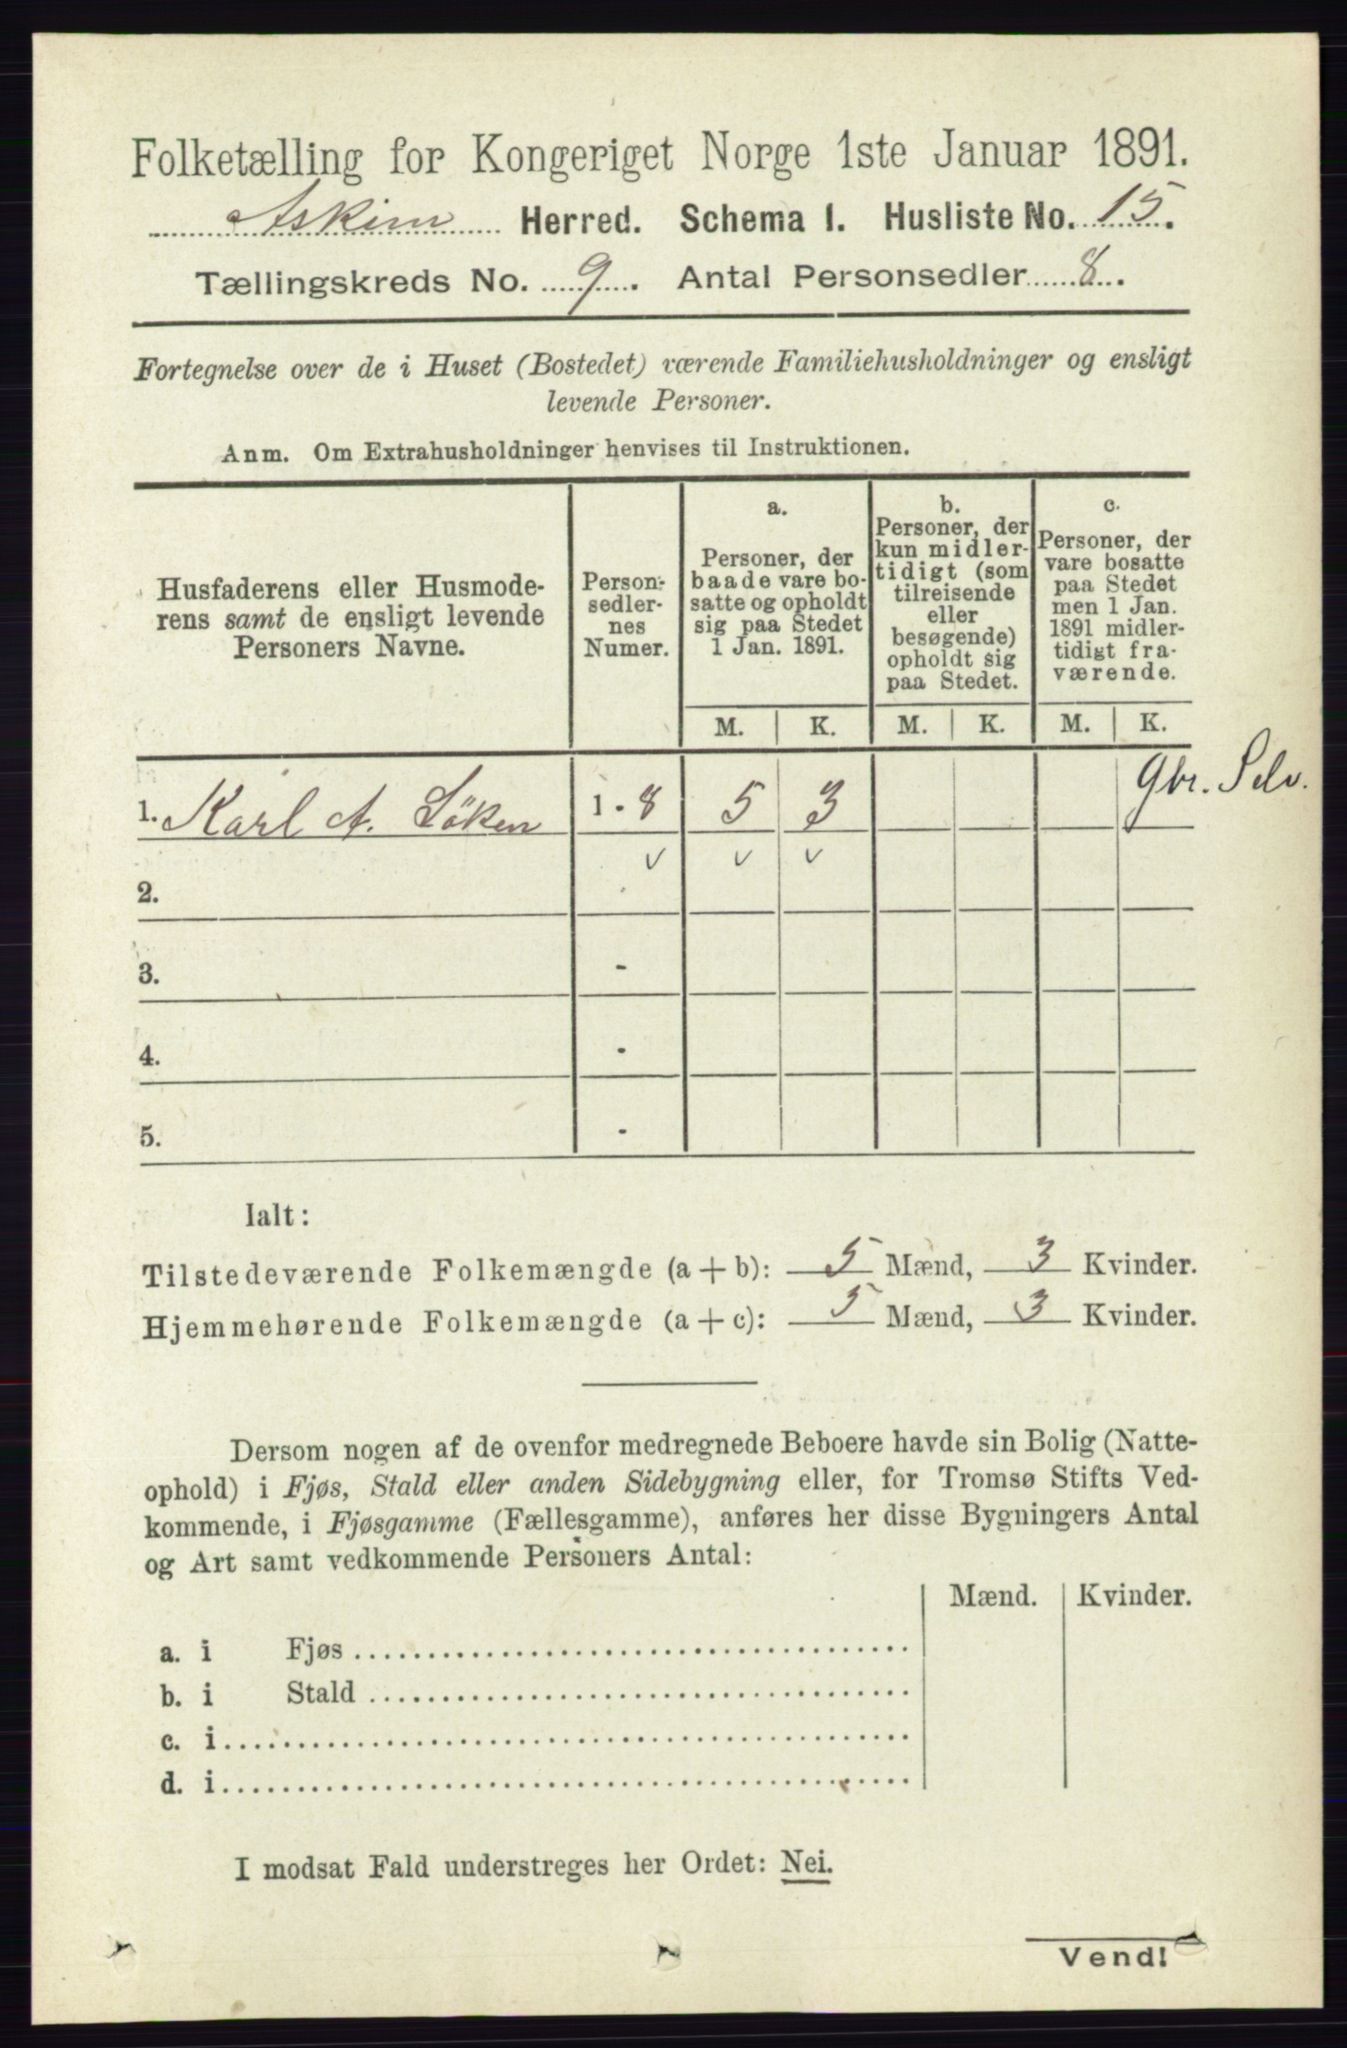 Folketælling for Kongeriget Norge 1ste Januar 1891.
Askim Herred. Schema 1. Husliste No. 15.
Tællingskreds No. 9. Antal Personsedler 8.
Fortegnelse over de i Huset (Bostedet) værende Familiehusholdninger og ensligt
levende Personer.
Anm. Om Extrahusholdninger henvises til Instruktionen.
Husfaderens eller Husmode-
rens samt de ensligt levende
Personers Navne.
Person-
sedler-
nes
Numer.
a.
Personer, der
baade vare bo-
satte og opholdt
sig paa Stedet
1 Jan. 1891.
b.
Personer, der
kun midler-
tidigt (som
tilreisende
eller
besøgende)
opholdt sig
paa Stedet.
c.
Personer, der
vare bosatte
paa Stedet
men 1 Jan.
1891 midler-
tidigt fra-
værende.
M. K. M. K. M. K.
1. Karl A. Löken 1 - 8 5 3 Gbr. Selv.
v v v
2.
3. -
4. -
5. -
Ialt:
Tilstedeværende Folkemængde (a + b): 5 Mænd, 3 Kvinder.
Hjemmehørende Folkemængde (a + c): 5 Mænd, 3 Kvinder.
Dersom nogen af de ovenfor medregnede Beboere havde sin Bolig (Natte-
ophold) i Fjøs, Stald eller anden Sidebygning eller, for Tromsø Stifts Ved-
kommende, i Fjøsgamme (Fællesgamme), anføres her disse Bygningers Antal
og Art samt vedkommende Personers Antal:
Mænd. Kvinder.
a. i Fjøs
b. i Stald
c. i
d. i
I modsat Fald understreges her Ordet: Nei.
Vend!